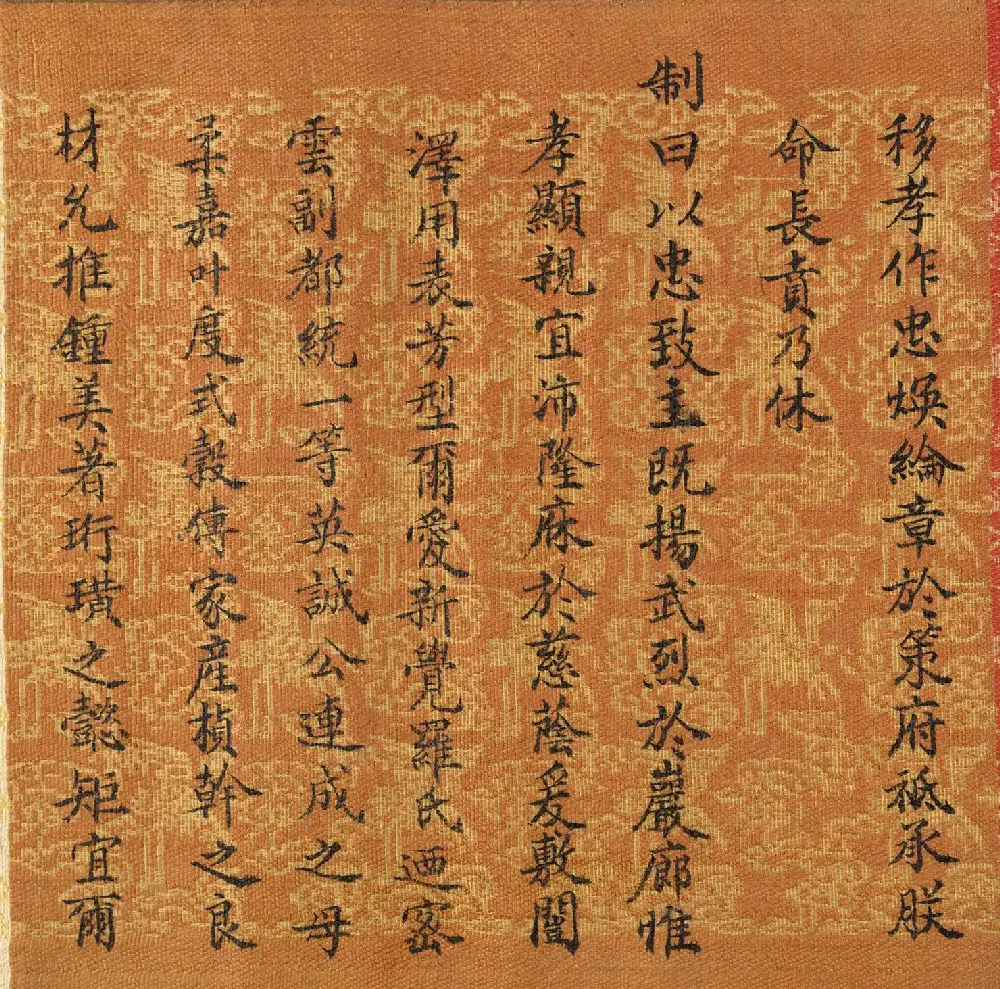 移孝作忠煥綸章於策府祗承朕
命長賁乃休
制曰以忠致主既揚武烈於巖廊惟
孝顯親宜沛隆庥於慈蔭爰敷闓
澤用表芳型爾愛新覺羅氏迺密
雲副都統一等英誠公連成之母
柔嘉叶度式穀傳家產楨幹之良
材允推鍾美著珩璜之懿矩宜爾